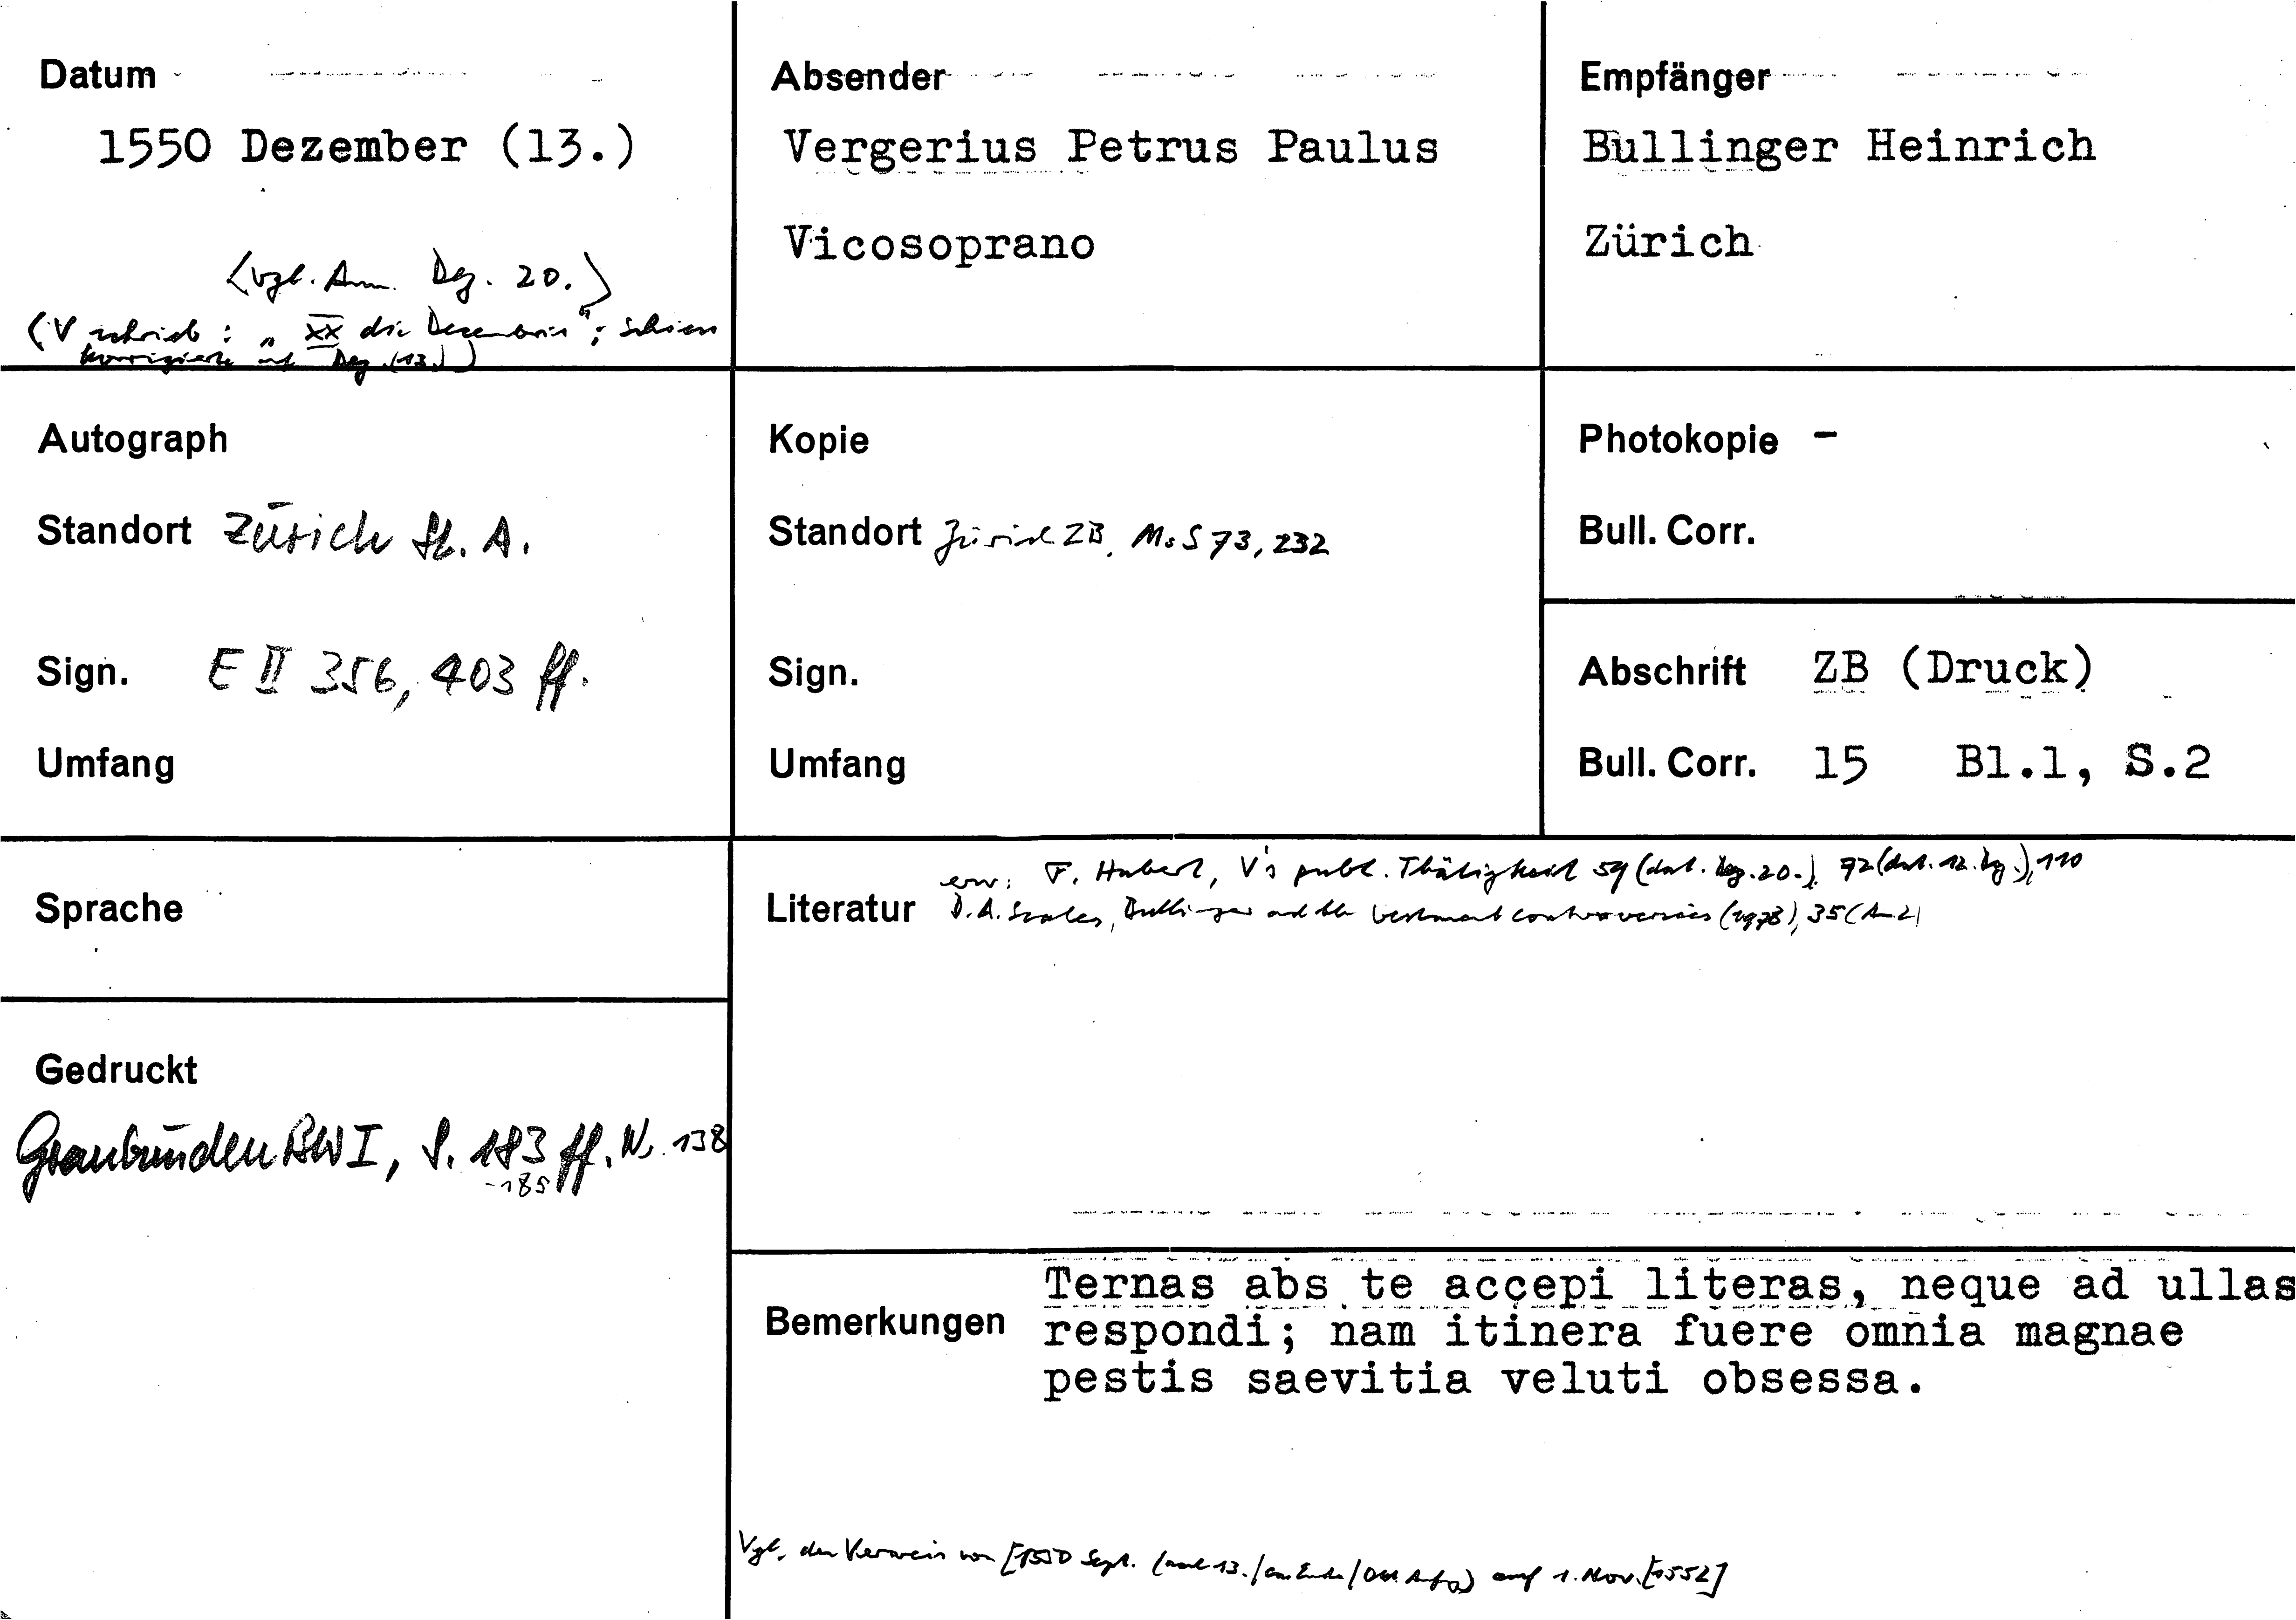 Datum
1550 Dezember (13.)
<vgl. Anm. Dez. 20.>
(V schrieb: „XX die Decembris"; Schiess
korrigierte auf Dez. (13.))
Absender
Vergerius Petrus Paulus
Vicosoprano
Empfänger
Bullinger Heinrich
Zürich
Autograph
Standort Zürich St. A.
Sign. E II 356, 403 ff.
Umfang
Kopie
Standort Zürich ZB, Ms S 73, 232
Sign.
Umfang
Photokopie -
Bull. Corr.
Abschrift ZB (Druck)
Bull. Corr. 15 Bl.1, S.2
Sprache
Gedruckt
Graubünden BW I, S. 183 ff. Nr. 138
-185
Literatur
erw: F. Hubert, V's publ. Thätigkeit 59 (dat. Dez. 20.), 72 (dat. 12. Dez.), 110
D.A. Scales, Bullinger and the vestment controversies (1973), 35 (A 2)
Bemerkungen
Ternas abs te accepi literas, neque ad ullas
respondi; nam itinera fuere omnia magnae
pestis saevitia veluti obsessa.
Vgl. den Verweis von [1550 Sept. (nach 13./am Ende/Okt. Anfg) auf 1. Nov. [1552]